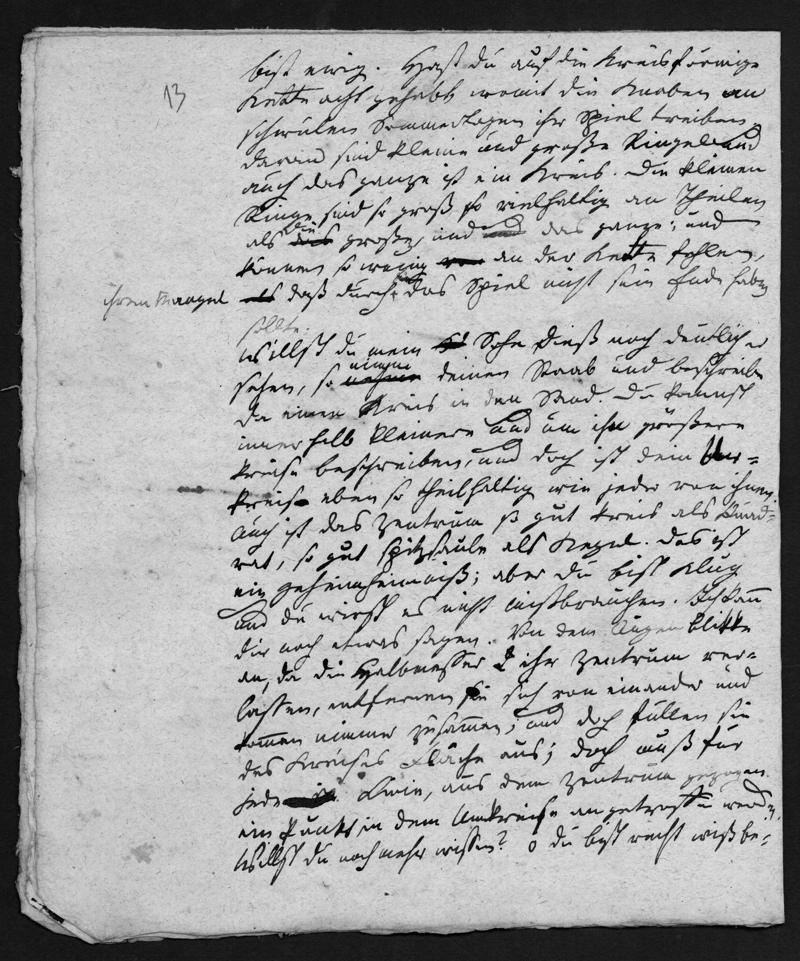 13
bist ewig. Hast du auf die Kreisförmige
Kette acht gehabt womit die Knaben an
schwülen Sommertagen ihr Spiel treiben
daran sind kleine und große Ringel und
auch das ganze ist ein Kreis. Die kleinen
Ringe sind so groß so vielhaltig an Theilen
als die große, und das ganze; und
können so wenig an der Kette fehlen,
ihrem Mangel
als daß durch das Spiel nicht sein Ende haben
sollte.
Willst du mein Sohn dieß noch deutlicher
sehen, so nimm deinen Staab und beschreibe
da einen Kreis in den Sand. Du kannst
innerhalb kleinere und um ihn größere
Kreise beschreiben, und doch ist dein
Kreis eben so theilhaltig wie jeder von ihnen.
Auch ist das Zentrum so gut Kreis als Quad=
rat, so gut Spitzsäule als Kegel. Das ist
ein geheimheimniß; aber du bist klug
und du wirst es nicht misbrauchen. Ich kann
dir noch etwas sagen. Von dem Augenblikke
an, da die Halbmesser ihr Zentrum ver=
lassen, entfernen sie sich von einander und
kommen nimmer zusammen; und doch füllen sie
des Kreises Fläche aus; doch muß für
jede Linie, aus dem Zentrum gezogen
ein Punkt in dem Umkreise angetroffen werden,
Willst du noch mehr wissen? o du bist recht wißbe=